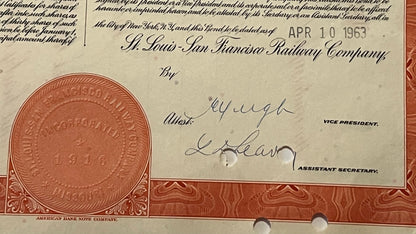 certificates for shares of
signed by its President or a Vice President and its corporate seal or a facsimile thereof to be affixed
after issue, such shares
thereunder or imprinted hereon and to be attested by its Secretary or an Assistant Secretary, all in
as thirty shares of such
the City of New York, N.Y., and this Bond to be dated as of
APR 10 1963
on before January 1,
St. Louis-San Francisco Railway Company,
By
VICE PRESIDENT.
Attest:
ASSISTANT SECRETARY.
ST. LOUIS-SAN FRANCISCO RAILWAY COMPANY
INCORPORATED
1916
MISSOURI
AMERICAN BANK NOTE COMPANY.